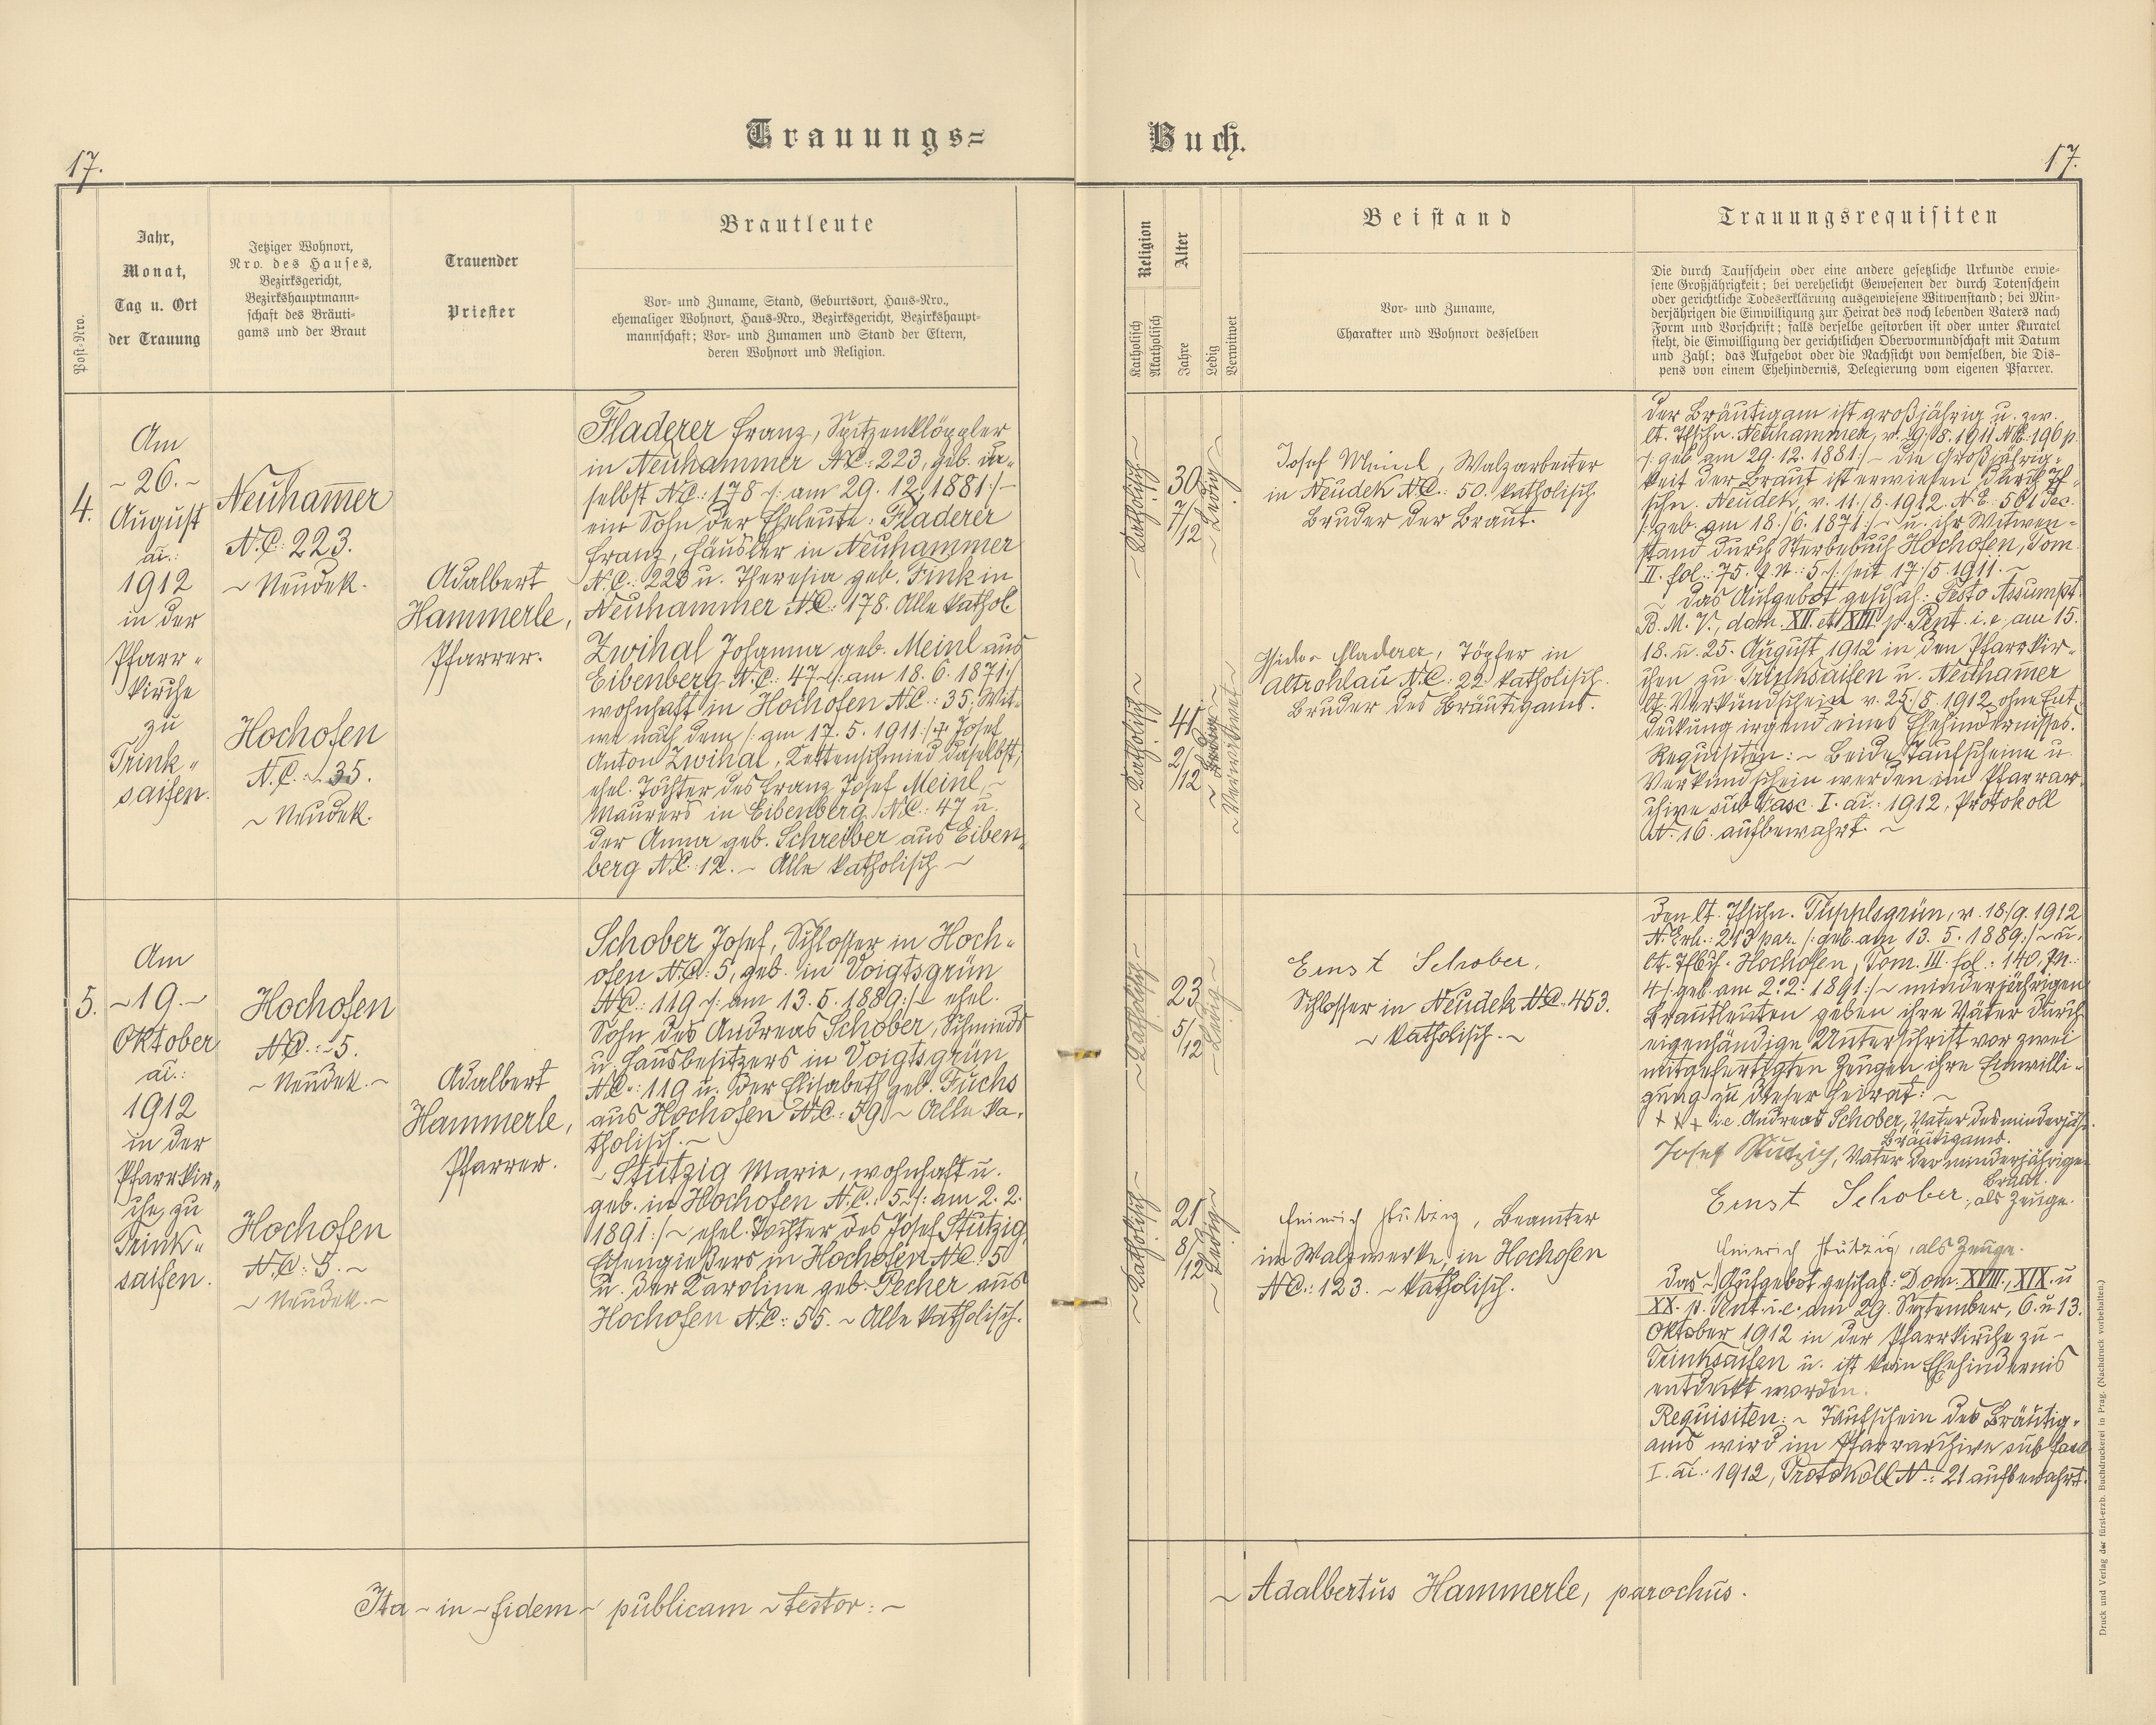 Trauungs=
Buch.
17.
17.
Post-Nro.
Jahr,
Monat,
Tag u. Ort
der Trauung
Jetziger Wohnort,
Nro. des Hauses,
Bezirksgericht,
Bezirkshauptmann-
schaft des Bräuti-
gams und der Braut
Trauender
Priester
Brautleute
Vor- und Zuname, Stand, Geburtsort, Haus-Nro.,
ehemaliger Wohnort, Haus-Nro., Bezirksgericht, Bezirkshaupt-
mannschaft; Vor- und Zunamen und Stand der Eltern,
deren Wohnort und Religion.
Religion
Katholisch
Akatholisch
Alter
Jahre
Ledig
Verwitwet
Beistand
Vor- und Zuname,
Charakter und Wohnort desselben
Trauungsrequisiten
Die durch Taufschein oder eine andere gesetzliche Urkunde erwie-
sene Großjährigkeit; bei verehelicht Gewesenen der durch Totenschein
oder gerichtliche Todeserklärung ausgewiesene Witwenstand; bei Min-
derjährigen die Einwilligung zur Heirat des noch lebenden Vaters nach
Form und Vorschrift; falls derselbe gestorben ist oder unter Kuratel
steht, die Einwilligung der gerichtlichen Obervormundschaft mit Datum
und Zahl; das Aufgebot oder die Nachsicht von demselben, die Dis-
pens von einem Ehehindernis, Delegierung vom eigenen Pfarrer.
4.
Am
~ 26. ~
August
ai.:
1912
in der
Pfarr-
kirche
zu
Trink-
saifen.
Neuham̅er
N.C. 223.
~ Neudek.
Hochofen
N.C.: 35.
~ Neudek.
Adalbert
Hammerle,
Pfarrer.
Fladerer Franz, Spitzenklöppler
in Neuhammer NC: 223, geb. da-
selbst N.C.: 178 /: am 29. 12. 1881:/ ~
ein Sohn der Eheleute: Fladerer
Franz, Häusler in Neuhammer
N.C.: 223 u. Theresia geb. Fink in
Neuhammer N.C.: 178. Alle kathol.
Zwihal Johanna geb. Meinl aus
Eibenberg N.C.: 47 ~ /: am 18. 6. 1871:/
wohnhaft in Hochofen N.C.: 35; Wit-
we nach dem /: am 17. 5. 1911:/ † Josef
Anton Zwihal, Kettenschmied daselbst,
ehel. Tochter des Franz Josef Meinl, ~
Maurers in Eibenberg, N.C.: 47 u.
der Anna geb. Schreiber aus Eiben-
berg N.C. 12. ~ Alle katholisch ~
~ Katholisch ~
30
7/12
~ Ledig ~
Josef Meinl, Walzarbeiter
in Neudek N.C.: 50. katholisch
Bruder der Braut.
~ Katholisch ~
41
2/12
~ Verwitwet ~
Fladerer, Töpfer in
Altrohlau N.C.: 22 katholisch.
Bruder des Bräutigams.
Der Bräutigam ist großjährig u. zw.
lt. Tfschn. Neuhammer, v. 19./8. 1911 N.E. 196 p.
/: geb. am 29. 12. 1881:/ ~ die Großjährig-
keit der Braut ist erwiesen durch Tf-
schn. Neudek, v. 11./8. 1912. N.E.: 501 dec.
/: geb. am 18./6. 1871:/ ~ u. ihr Witwen-
stand durch Sterbebuch Hochofen, Tom.
II. fol.: 75. P.N.: 5 /: seit 17./5. 1911. ~
~ Das Aufgebot geschah: Festo Assumpt.
B. M. V., dom. XII. et XIII. p. Pent. i. e. am 15.
18. u. 25. August 1912 in den Pfarrkir-
chen zu Trinksaifen u. Neuham̅er
lt. Verkündschein v. 25./8. 1912 ohne Ent-
deckung irgend eines Ehehindernisses.
Requisiten: ~ Beide Taufscheine u.
Verkündschein werden im Pfarrar-
chive sub Fasc. I. ai.: 1912, Protokoll
N. 16. aufbewahrt. ~
5.
Am
~ 19. ~
Oktober
ai.:
1912
in der
Pfarrkir-
che zu
Trink-
saifen.
Hochofen
N.C.: 5.
~ Neudek. ~
Hochofen
N.C.: 5. ~
~ Neudek. ~
Adalbert
Hammerle,
Pfarrer.
Schober Josef, Schlosser in Hoch-
ofen N.C.: 5, geb. in Voigtsgrün
N.C.: 119 /: am 13. 5. 1889:/ ~ ehel.
Sohn des Andreas Schober, Schmieds
u. Hausbesitzers in Voigtsgrün
N.C.: 119 u. der Elisabeth geb. Fuchs
aus Hochofen N.C.: 39 ~ Alle ka-
tholisch. ~
~ Stützig Marie, wohnhaft u.
geb. in Hochofen N.C.: 5 /: am 2. 2.
1891:/ ~ ehel. Tochter des Josef Stützig,
Eisengießers in Hochofen N.C.: 5
u. der Karoline geb. Pecher aus
Hochofen N.C.: 55. ~ Alle katholisch.
~ Katholisch ~
23
5/12
~ Ledig ~
Ernst Schober,
Schlosser in Neudek N.C. 453.
~ katholisch. ~
~ Katholisch ~
21
8/12
~ Ledig ~
Heinrich Stützig, Beamter
im Walzwerke, in Hochofen
N.C.: 123. ~ katholisch.
Den lt. Tfschn. Tüpplsgrün, v. 18/9. 1912
N. Exh.: 213 par. /: geb. am 13. 5. 1889:/ ~ u.
lt. Tfbch. Hochofen, Tom. III. fol.: 140, P.N.:
4 /: geb. am 2. 2. 1891:/ ~ minderjährigen
Brautleuten geben ihre Väter durch
eigenhändige Unterschrift vor zwei
mitgefertigten Zeugen ihre Einwilli-
gung zu dieser Heirat: ~
+ + + i.e. Andreas Schober, Vater des minderjähr.
Bräutigams.
Josef Stützig, Vater der minderjährigen
Braut.
Ernst Schober, als Zeuge.
Heinrich Stützig, als Zeuge.
Das ~ Aufgebot geschah: Dom. XVIII., XIX. u
XX. p. Pent. i. e. am 29. September, 6. u 13.
Oktober 1912 in der Pfarrkirche zu ~
Trinksaifen u. ist kein Ehehindernis
entdeckt worden.
Requisiten: ~ Taufschein des Bräutig-
ams wird im Pfarrarchive sub fasc
I. ai.: 1912, Protokoll N.: 21 aufbewahrt.
Ita ~ in ~ fidem ~ publicam ~ testor: ~
~ Adalbertus Hammerle, parochus.
Druck und Verlag der fürst-erzb. Buchdruckerei in Prag. (Nachdruck vorbehalten.)